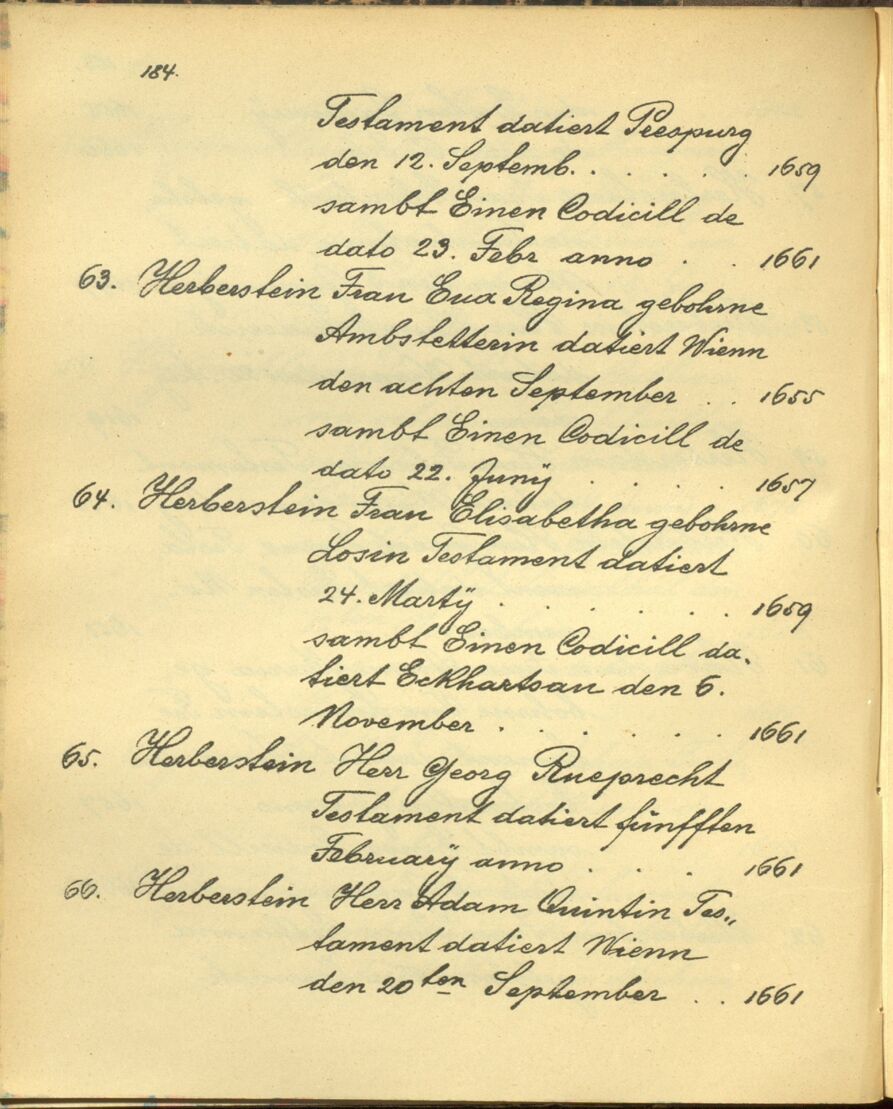 184.
Testament datiert Prespurg
den 12. Septemb. . . . . . 1659
sambt Einen Codicill de
dato 23. Febr anno . . 1661
63. Herberstein Frau Eua Regina gebohrne
Ambstetterin datiert Wienn
den achten September . . 1655
sambt Einen Codicill de
dato 22. Junÿ . . . . 1657
64. Herberstein Frau Elisabetha gebohrne
Losin Testament datiert
24. Martÿ . . . . . . 1659
sambt Einen Codicill da„
tiert Eckhartsau den 6.
November . . . . . . 1661
65. Herberstein Herr Georg Rueprecht
Testament datiert fünfften
Februarÿ anno . . . . 1661
66. Herberstein Herr Adam Quintin Tes„
tament datiert Wienn
den 20ten September . . 1661